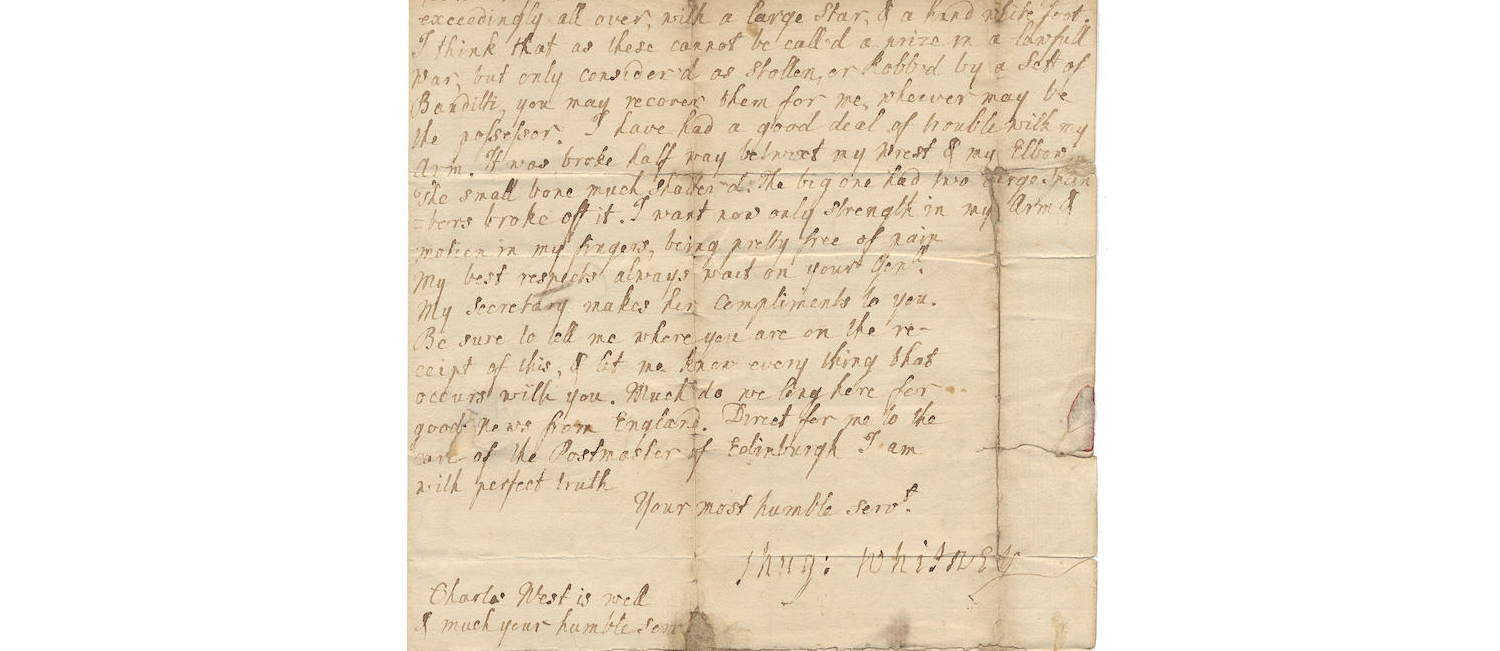 exceedingly all over, with a large Star, & a hind white foot.
I think that as these cannot be call'd a prize in a lawfull
War, but only consider'd as Stollen, or Robb'd by a Sett of
Banditti, you may recover them for me, whoever may be
the possessor. I have had a good deal of trouble with my
Arm. It was broke half way betwixt my Wrest & my Elbow
The small bone much shatter'd. The big one had two large
=bers broke off it. I want now only strength in my Arm &
motion in my fingers, being pretty free of pain
My best respects always wait on your Genll.
My secretary makes her Compliments to you.
Be sure to tell me where you are on the re-
ceipt of this, & let me know every thing that
occurs with you. Much do we long here for
good news from England. Direct for me to the
care of the Postmaster of Edinburgh I am
with perfect truth
Your most humble servt.
Shug: Whitney
Charles West is well
& much your humble